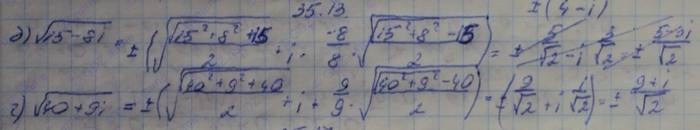 35.13
± (4 - i)
д) √15 - 8i = ± (√((√(15² + 8²) + 15)/2) + i · (-8)/8 · √((√(15² + 8²) - 15)/2)) = ± 5/√2 - i 3/√2 = ± (5 - 3i)/√2
г) √40 + 9i = ± (√((√(40² + 9² + 40)/2) + i + 9/9 · √((√(40² + 9² - 40)/2)) = ± (9/√2 + i i/√2) = ± (9 + i)/√2